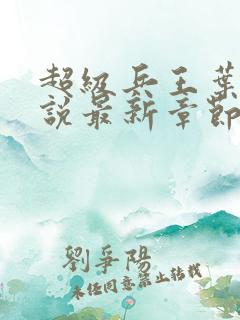 超級兵王葉
說最新章節
劉爭陽
未經同意禁止轉載